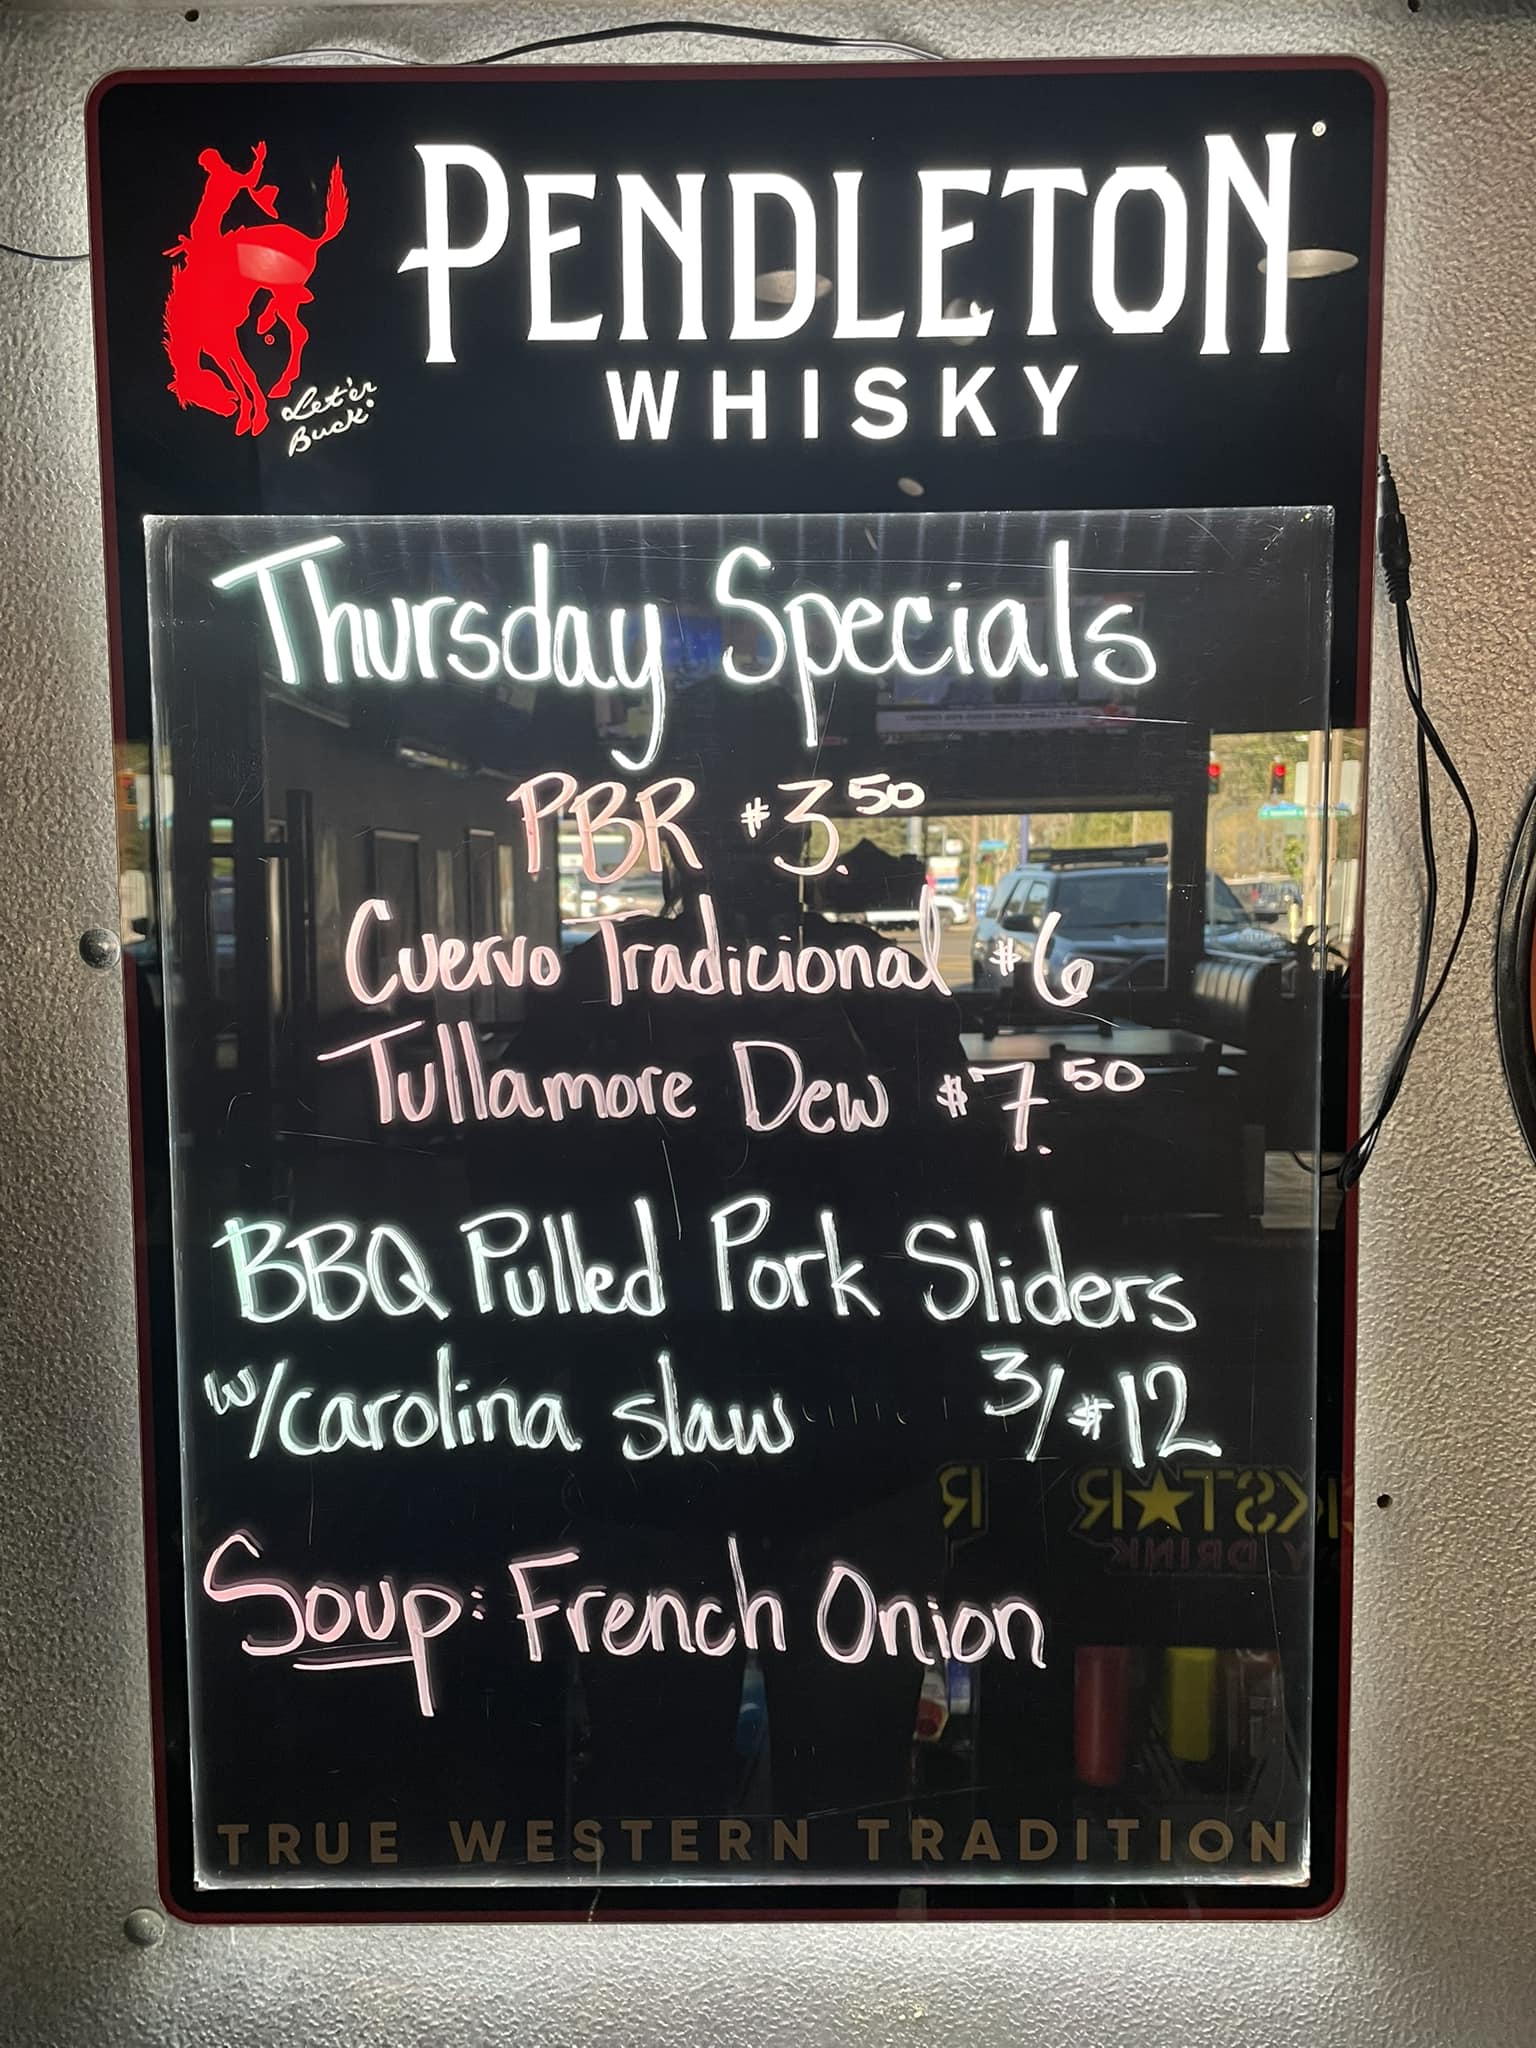 PENDLETON®
WHISKY
Let'er
Buck®
Thursday Specials
PBR $3.50
Cuervo Tradicional $6
Tullamore Dew $7.50
BBQ Pulled Pork Sliders
w/carolina slaw 3/$12
Soup: French Onion
TRUE WESTERN TRADITION